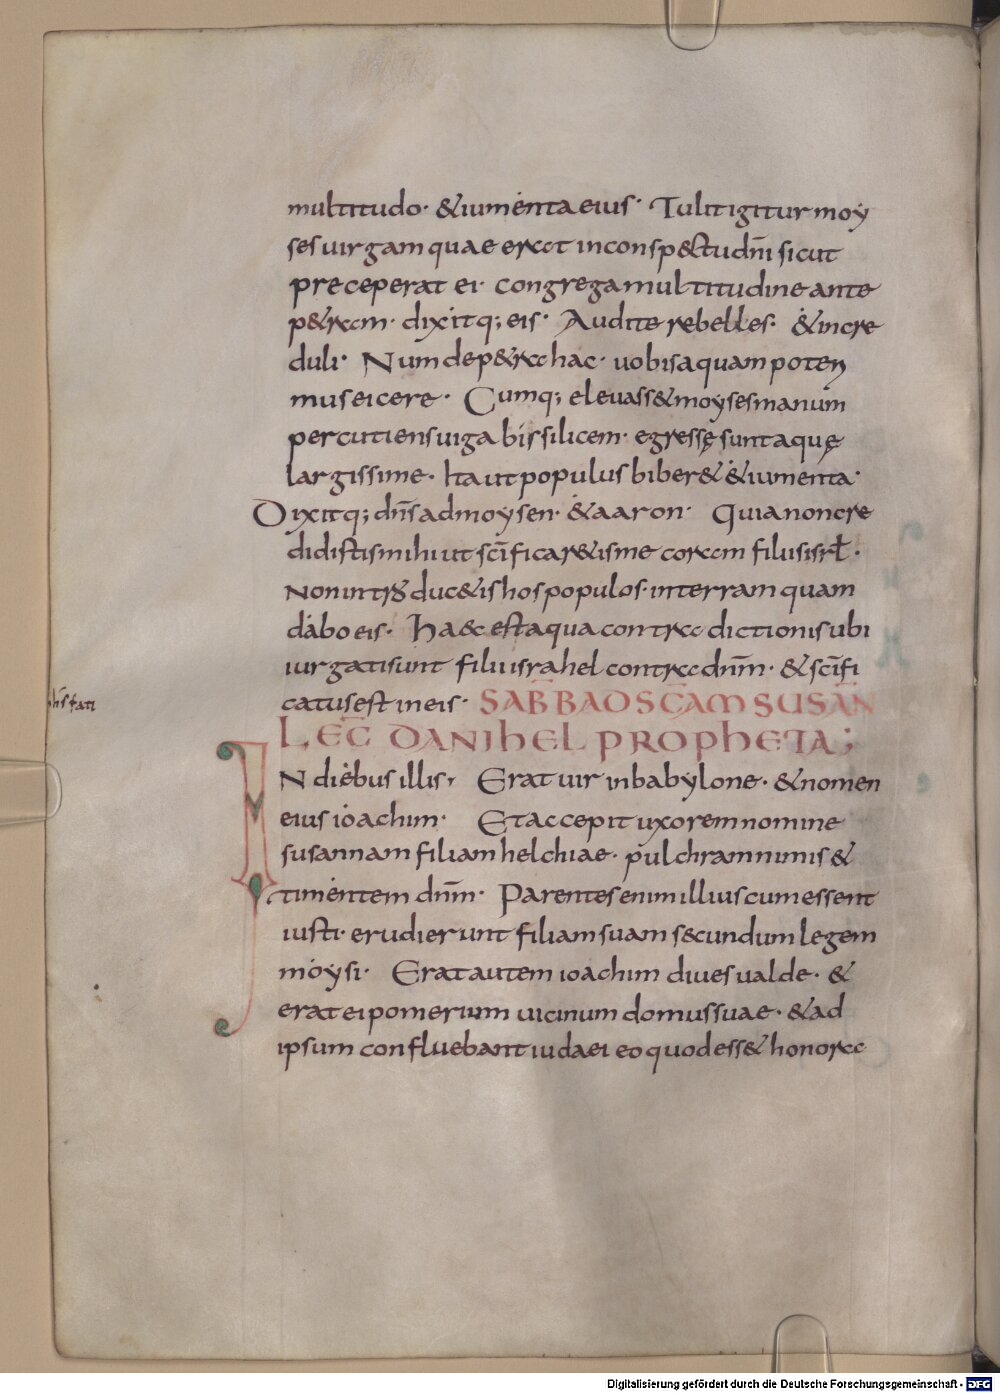 multitudo· &iumenta eius· Tulit igitur moy
ses uirgam quae erat in consp&ctu dn̄i sicut
preceperat ei· congrega multitudine ante
p&ram· dixitq; eis· Audite rebelles· &incre
duli· Num de p&ra hac· uobis aquam poteri
mus eicere· Cumq; eleuass& moyses manum
percutiens uiga bis silicem· egressę sunt aquę
largissime· Ita ut populus biber& &iumenta·
Dixitq; dn̄s ad moysen· &aaron· Quia non cre
didistis mihi ut scīficar&is me coram filiis isrł·
Non intro duc&is hos populos· in terram quam
dabo eis· Haec est aqua contra dictionis ubi
iurgati sunt filii israhel contra dn̄m· &scīfi
catus est in eis· SAB̄BAO SC̄AM SUSAN̄
LEC̄ DANIHEL PROPHETA;
IN diebus illis, Erat uir in babylone· &nomen
eius ioachim· Et accepit uxorem nomine
susannam filiam helchiae· pulchram nimis &
timentem dn̄m· Parentes enim illius cum essent
iusti· erudierunt filiam suam secundum legem
moysi· Erat autem ioachim diues ualde· &
erat ei pomerium uicinum domus suae· &ad
ipsum confluebant iudaei eo quod ess& honora